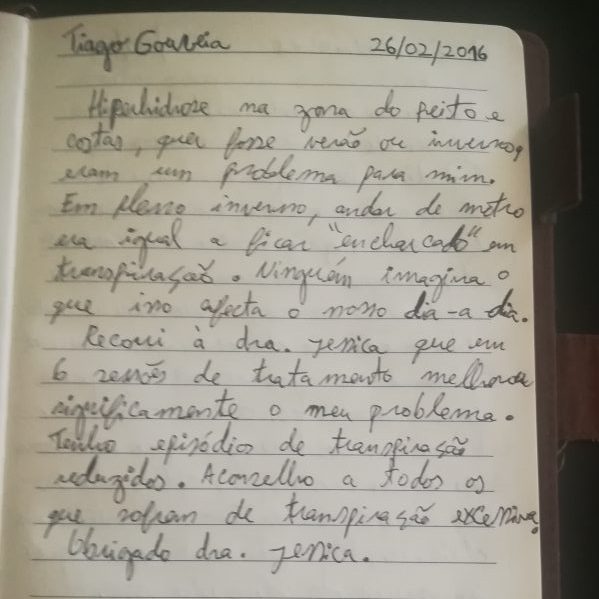 Tiago Gouveia 26/02/2016
Hiperhidrose na zona do peito e
costas, quer fosse verão ou inverno,
eram um problema para mim.
Em pleno inverno, andar de metro
era igual a ficar "encharcado" em
transpiração. Ninguém imagina o
que isso afecta o nosso dia-a dia.
Recorri à dra. Jessica que em
6 sessões de tratamento melhorou
significamente o meu problema.
Tenho episódios de transpiração
reduzidos. Aconselho a todos os
que sofram de transpiração excessiva.
Obrigado dra. Jessica.